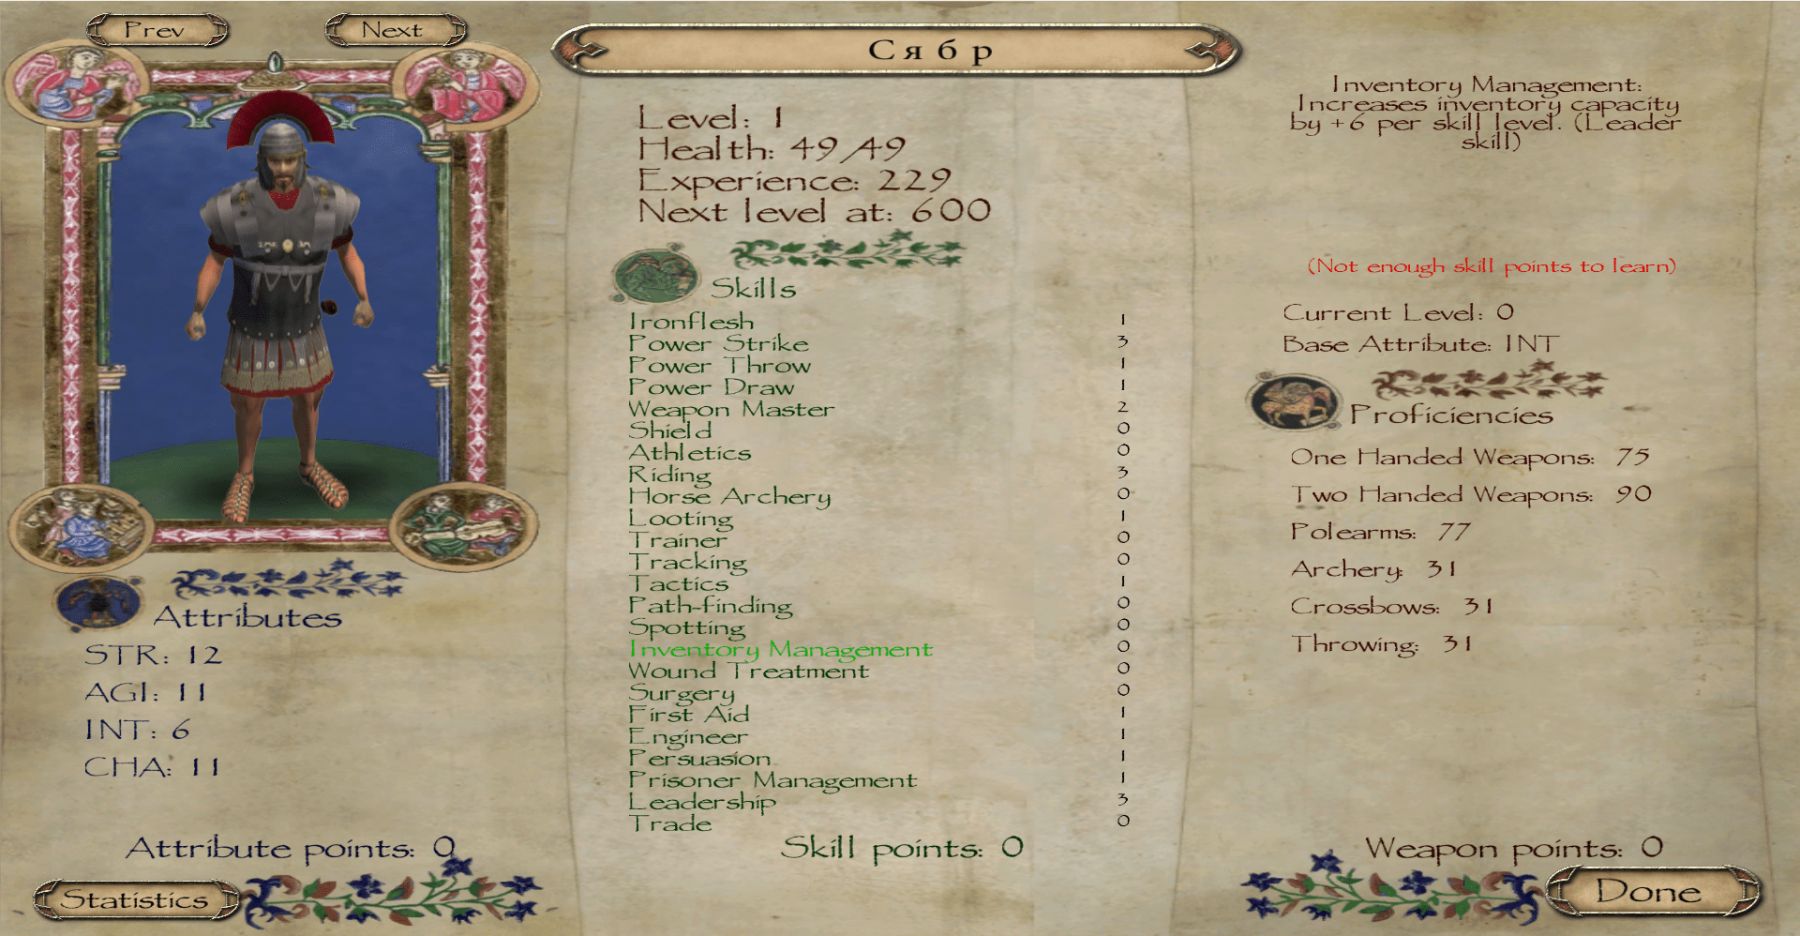 Prev
Next
Сябр
Level: 1
Health: 49/49
Experience: 229
Next level at: 600
Skills
Ironflesh 1
Power Strike 3
Power Throw 1
Power Draw 1
Weapon Master 2
Shield 0
Athletics 0
Riding 3
Horse Archery 0
Looting 1
Trainer 0
Tracking 0
Tactics 1
Path-finding 0
Spotting 0
Inventory Management 0
Wound Treatment 0
Surgery 0
First Aid 1
Engineer 1
Persuasion 1
Prisoner Management 1
Leadership 3
Trade 0
Skill points: 0
Attributes
STR: 12
AGI: 11
INT: 6
CHA: 11
Attribute points: 0
Statistics
Inventory Management:
Increases inventory capacity
by +6 per skill level. (Leader
skill)
(Not enough skill points to learn)
Current Level: 0
Base Attribute: INT
Proficiencies
One Handed Weapons: 75
Two Handed Weapons: 90
Polearms: 77
Archery: 31
Crossbows: 31
Throwing: 31
Weapon points: 0
Done